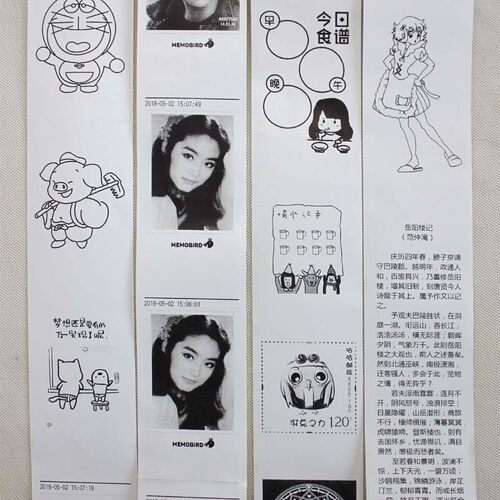 梦想还是要有的
万一实现了呢
2018-05-02 15:07:19
MEMOBIRD
2018-05-02 15:07:49
MEMOBIRD
2018-05-02 15:08:01
MEMOBIRD
今日
食谱
早
晚
午
喝水记录
120
岳阳楼记
（范仲淹）
庆历四年春，滕子京谪
守巴陵郡。越明年，政通人
和，百废具兴，乃重修岳阳
楼，增其旧制，刻唐贤今人
诗赋于其上。属予作文以记
之。
予观夫巴陵胜状，在洞
庭一湖。衔远山，吞长江，
浩浩汤汤，横无际涯；朝晖
夕阴，气象万千。此则岳阳
楼之大观也，前人之述备矣。
然则北通巫峡，南极潇湘，
迁客骚人，多会于此，览物
之情，得无异乎？
若夫淫雨霏霏，连月不
开，阴风怒号，浊浪排空；
日星隐曜，山岳潜形；商旅
不行，樯倾楫摧；薄暮冥冥，
虎啸猿啼。登斯楼也，则有
去国怀乡，忧谗畏讥，满目
萧然，感极而悲者矣。
至若春和景明，波澜不
惊，上下天光，一碧万顷；
沙鸥翔集，锦鳞游泳，岸芷
汀兰，郁郁青青。而或长烟